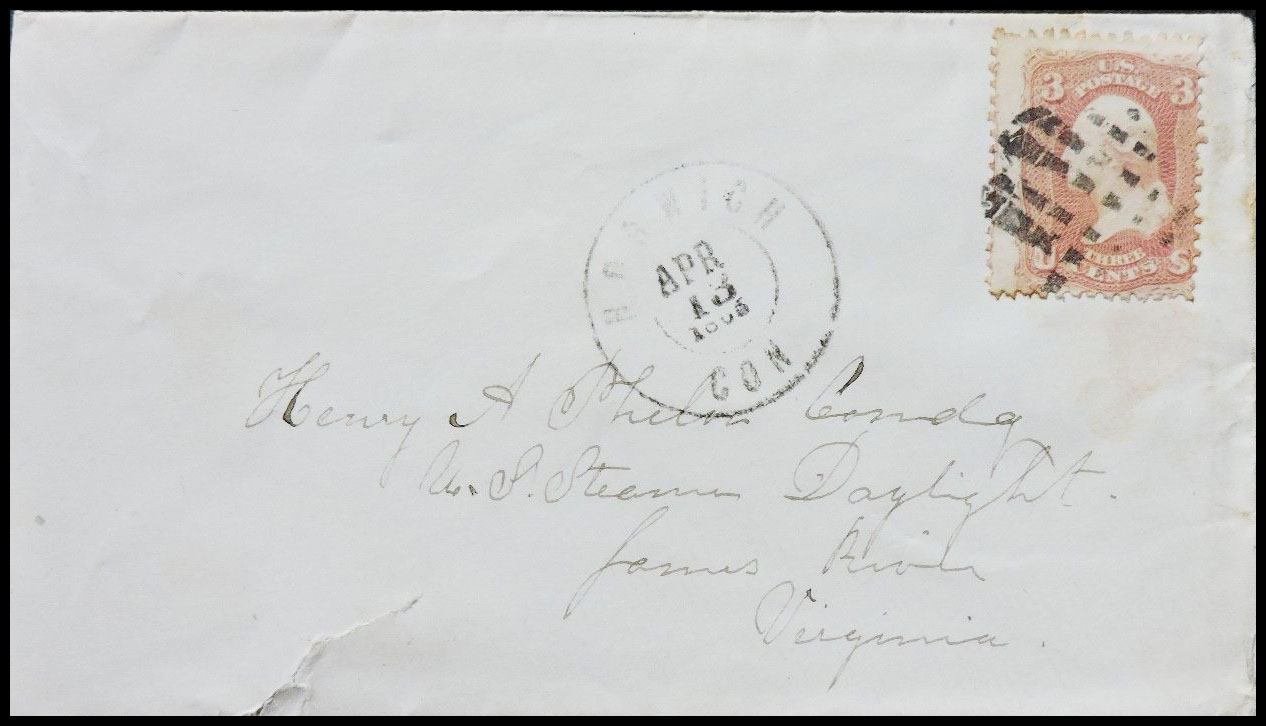 3 U.S. 3
POSTAGE
THREE
U CENTS S
NORWICH
APR
13
1865
CON
Henry A Phelon Comdg
U.S. Steamer Daylight.
James River
Virginia.